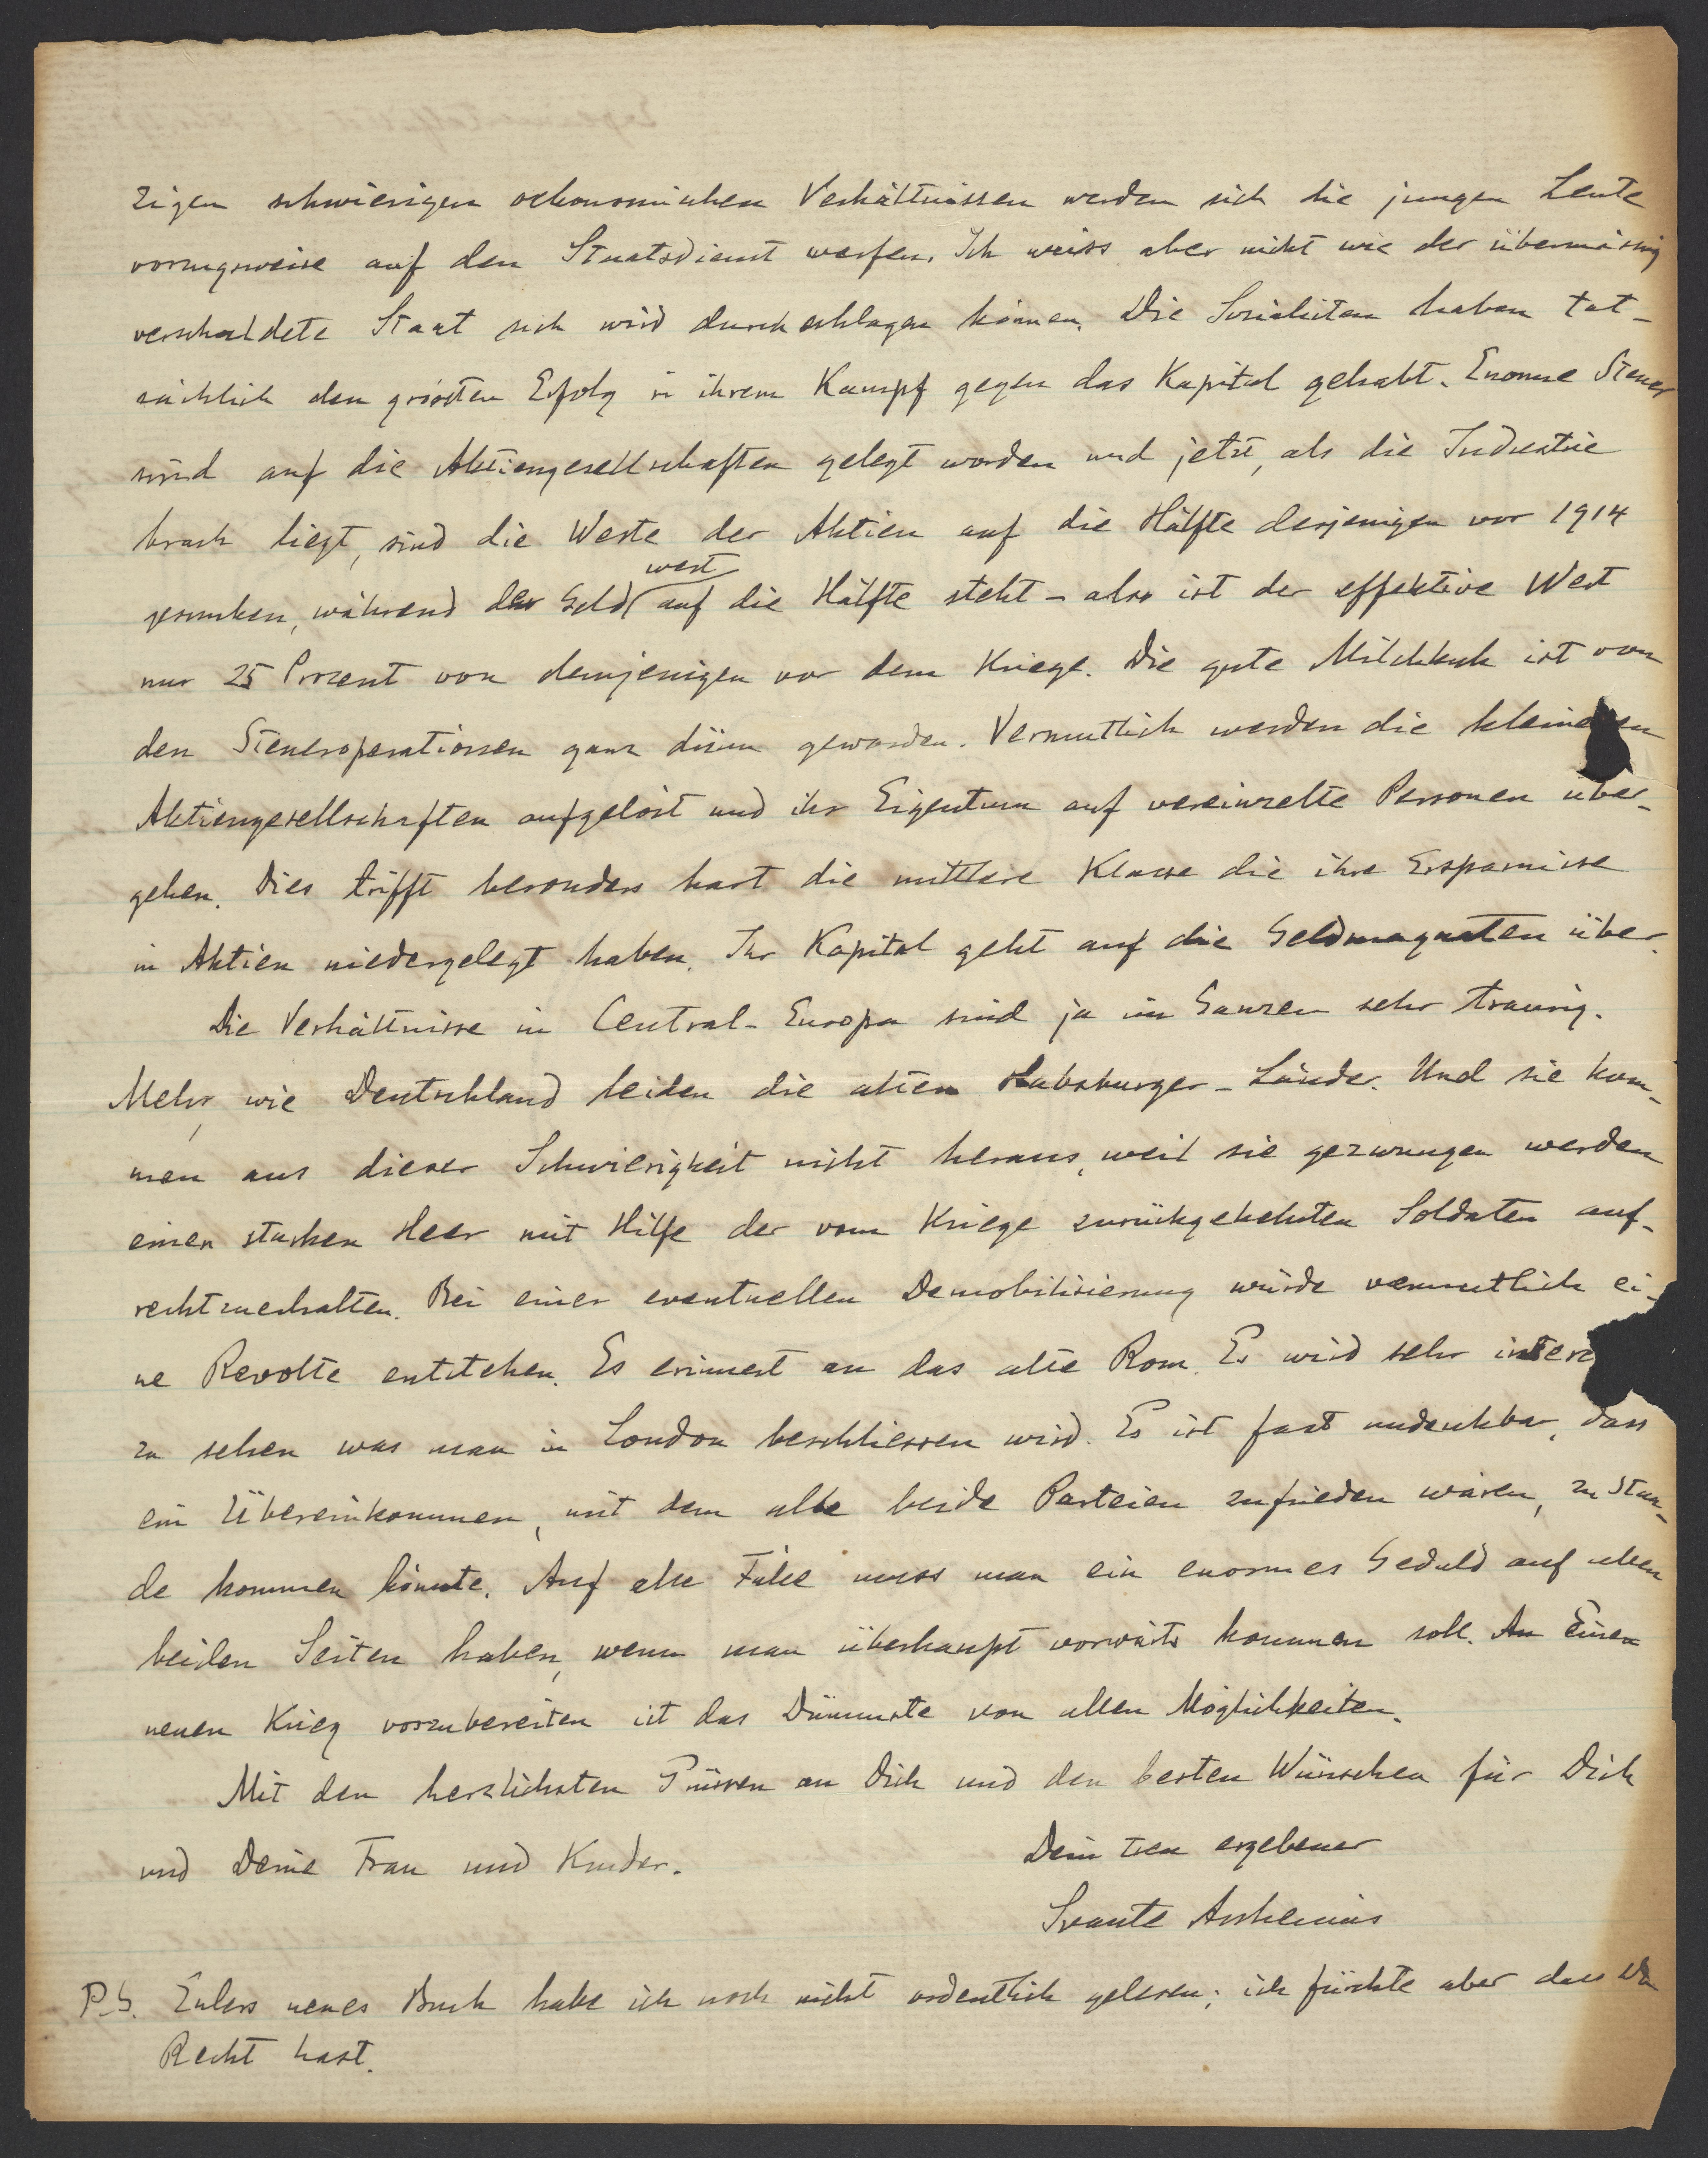 zigen schwierigen oekonomischen Verhältnissen werden sich die jungen Leute
vorzugsweise auf den Staatsdienst werfen. Ich weiss aber nicht wie der übermässig
verschuldete Staat sich wird durchschlagen können. Die Sozialisten haben tat-
sächlich den grössten Erfolg in ihrem Kampf gegen das Kapital gehabt. Enorme Steuer
sind auf die Aktiengesellschaften gelegt worden und jetzt, als die Industrie
brach liegt, sind die Werte der Aktien auf die Hälfte derjenigen vor 1914
gesunken, während der Geldwert auf die Hälfte steht - also ist der effektive Wert
nur 25 Prozent von demjenigen vor dem Kriege. Die gute Milchkuh ist von
den Steueroperationen ganz dünn geworden. Vermutlich werden die kleineren
Aktiengesellschaften aufgelöst und ihr Eigentum auf vereinzelte Personen über-
gehen. Dies trifft besonders hart die mittlere Klasse die ihre Ersparnisse
in Aktien niedergelegt haben. Ihr Kapital geht auf die Geldmagnaten über.
Die Verhältnisse in Central-Europa sind ja im Ganzen sehr traurig.
Mehr, wie Deutschland leiden die alten Habsburger-Länder. Und sie kom-
men aus dieser Schwierigkeit nicht heraus, weil sie gezwungen werden
einen starken Heer mit Hilfe der vom Kriege zurückgekehrten Soldaten auf-
rechtzuerhalten. Bei einer eventuellen Demobilisierung würde vermutlich ei-
ne Revolte entstehen. Es erinnert an das alte Rom. Es wird sehr inter
zu sehen was man in London beschliessen wird. Es ist fast undenkbar, dass
ein Übereinkommen, mit dem alle beide Parteien zufrieden wären, zu Stan-
de kommen könnte. Auf alle Fälle muss man ein enormes Geduld auf allen
beiden Seiten haben, wenn man überhaupt vorwärts kommen soll. Einen
neuen Krieg vorzubereiten ist das Dümmste von allen Möglichkeiten.
Mit den herzlichsten Grüssen an Dich und den besten Wünschen für Dich
und Deine Frau und Kinder.
Dein treu ergebener
Svante Arrhenius
P.S. Eulers neues Buch habe ich noch nicht ordentlich gelesen; ich fürchte aber dass Du
Recht hast.